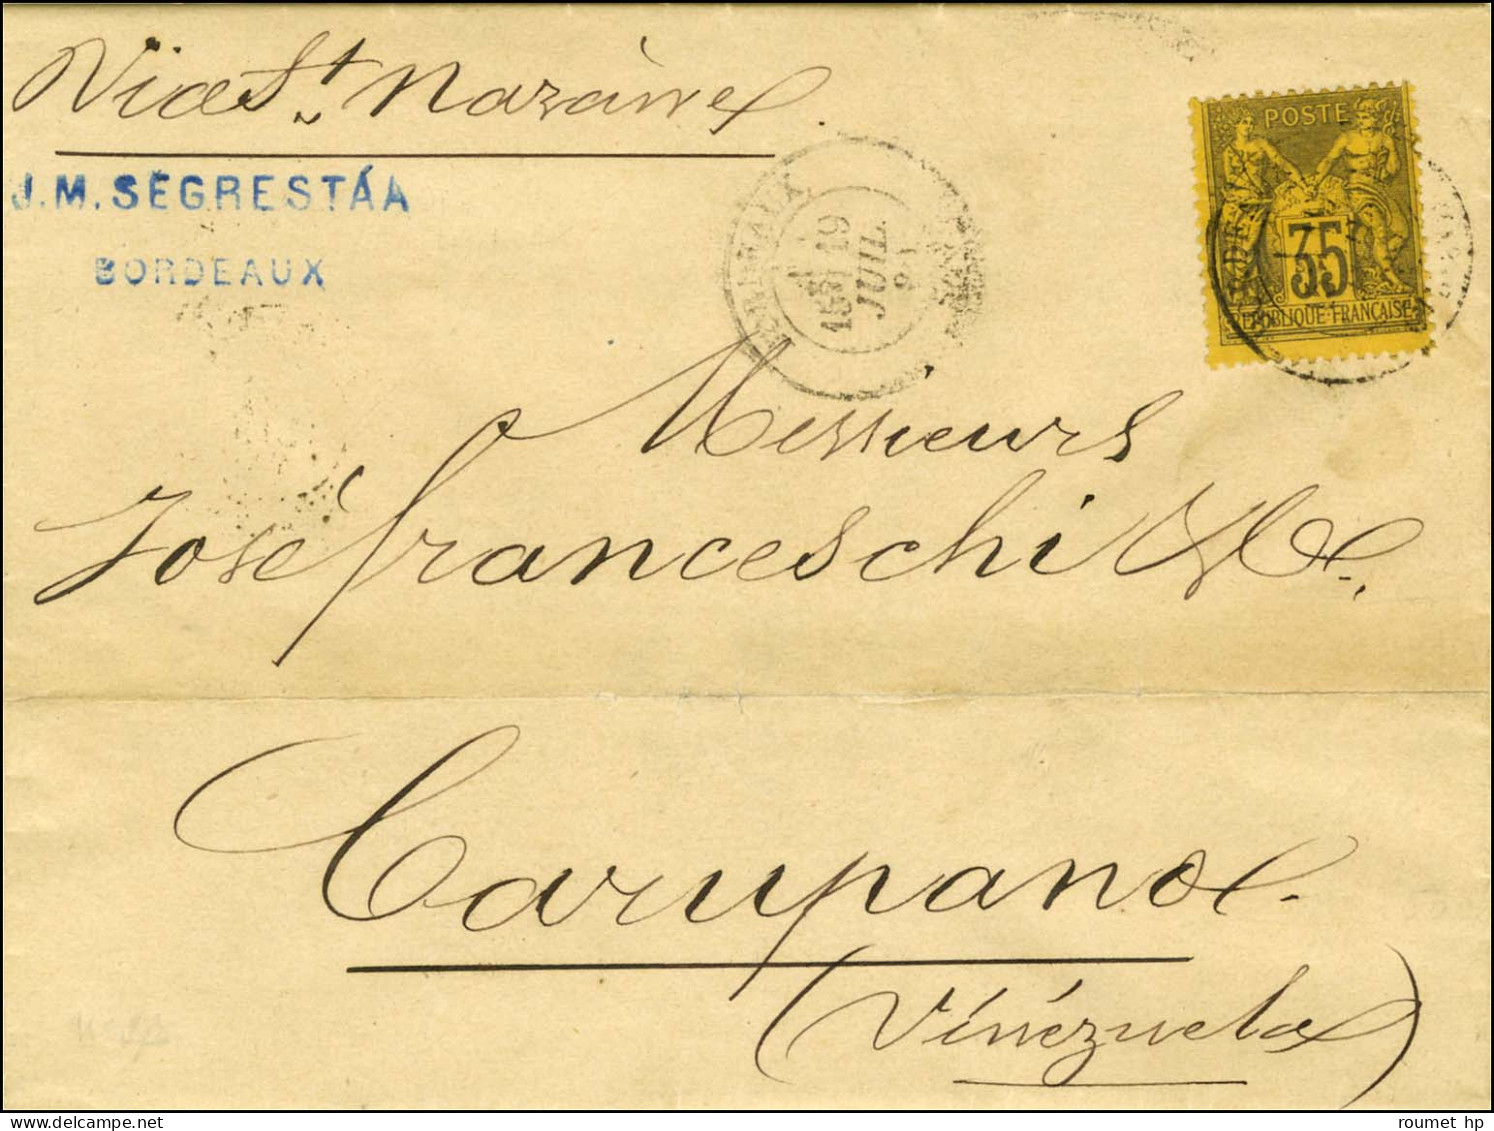 Via St. Nazaire
J.M. SEGRESTÁA
BORDEAUX
BORDEAUX
19
JUIL.
81
POSTE
35
REPUBLIQUE FRANÇAISE
Messieurs
José franceschi & Ce.
Carupano
(Vénézuela)
roumet hp